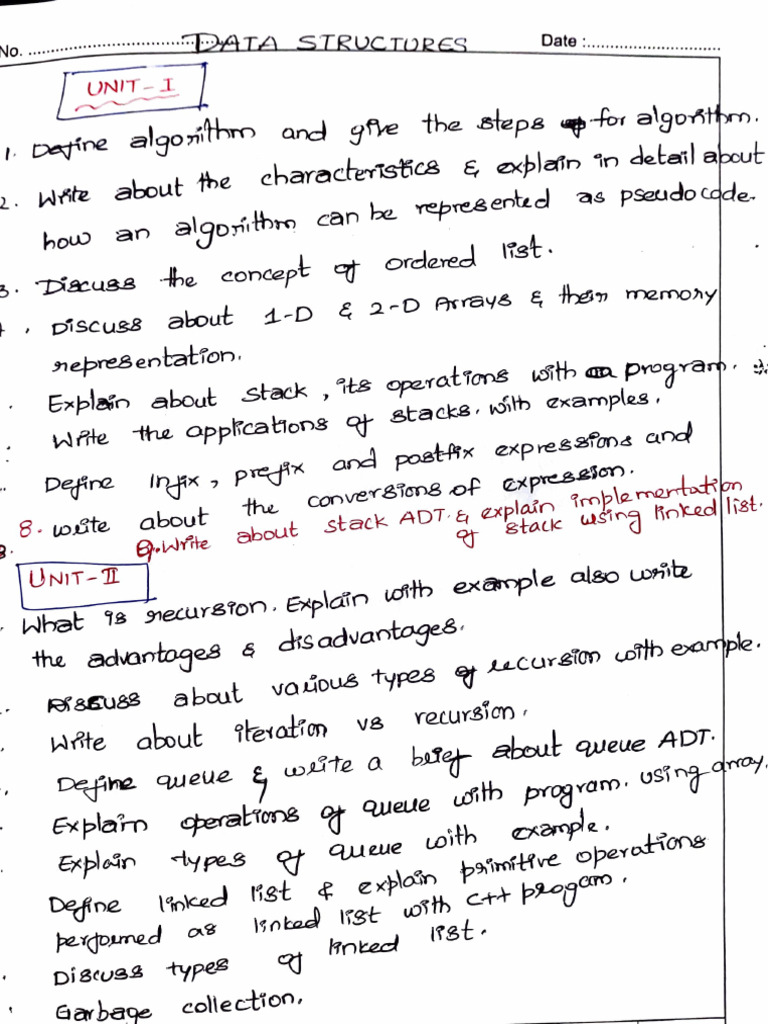 No. ........ DATA STRUCTURES Date :........
UNIT-I
1. Define algorithm and give the steps for algorithm.
2. Write about the characteristics & explain in detail about
how an algorithm can be represented as pseudocode.
3. Discuss the concept of ordered list.
. Discuss about 1-D & 2-D Arrays & their memory
representation.
. Explain about stack, its operations with program.
. Write the applications of stacks. with examples.
Define Infix, prefix and postfix expressions and
8. write about the conversions of expression.
9. Write about stack ADT. & explain implementation
of stack using linked list.
UNIT-II
. What is recursion. Explain with example also write
the advantages & disadvantages.
. Discuss about various types of recursion with example.
. Write about iteration vs recursion.
. Define queue & write a brief about queue ADT.
. Explain operations of queue with program. using array.
. Explain types of queue with example.
Define linked list & explain primitive operations
performed as linked list with c++ progam.
. Discuss types of linked list.
. Garbage collection.